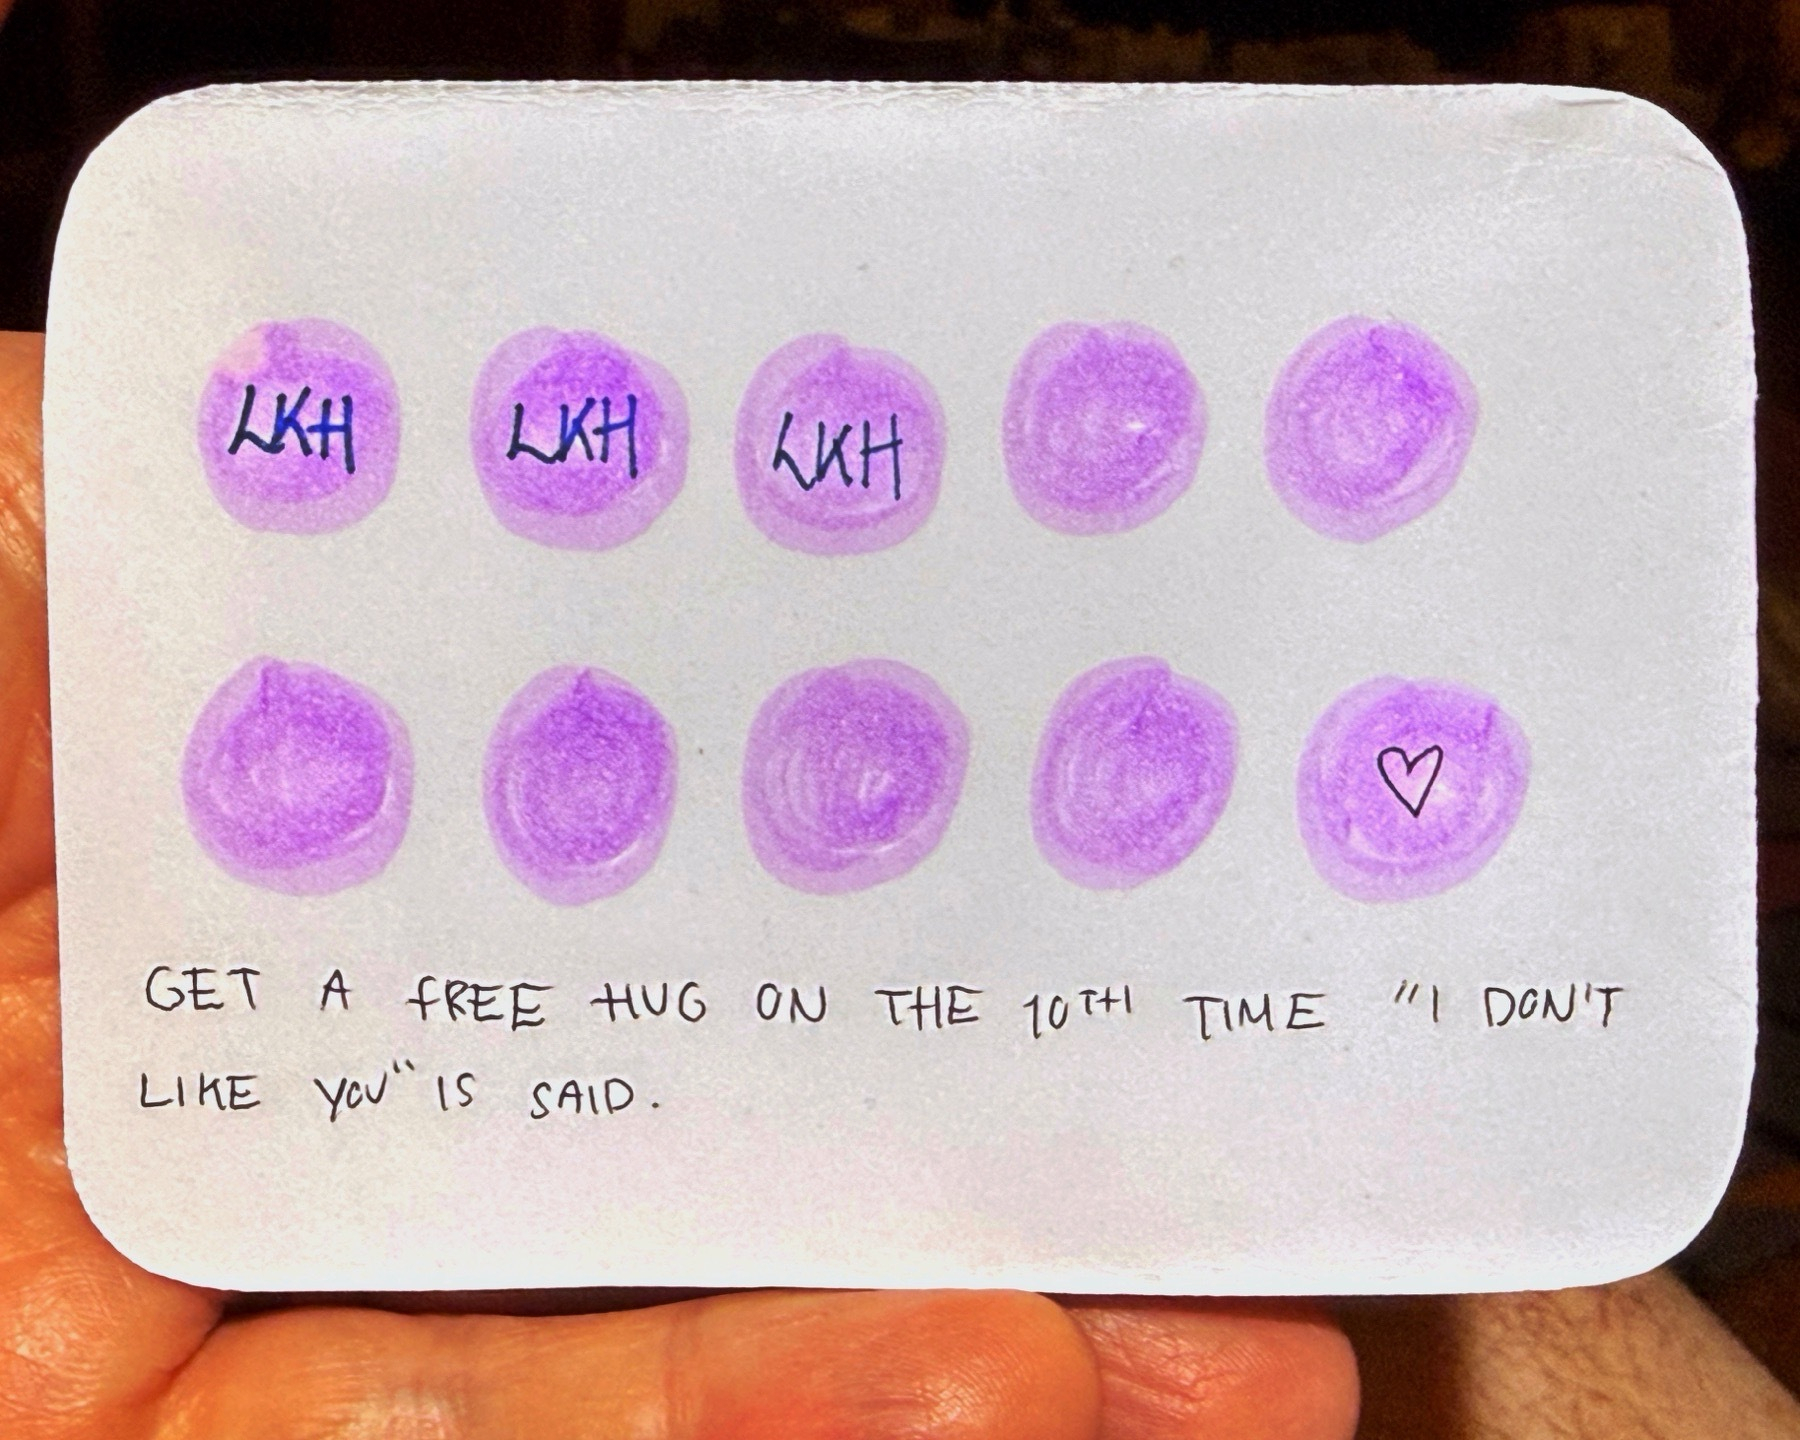 LKH LKH LKH
GET A FREE HUG ON THE 10TH TIME "I DON'T
LIKE YOU" IS SAID.